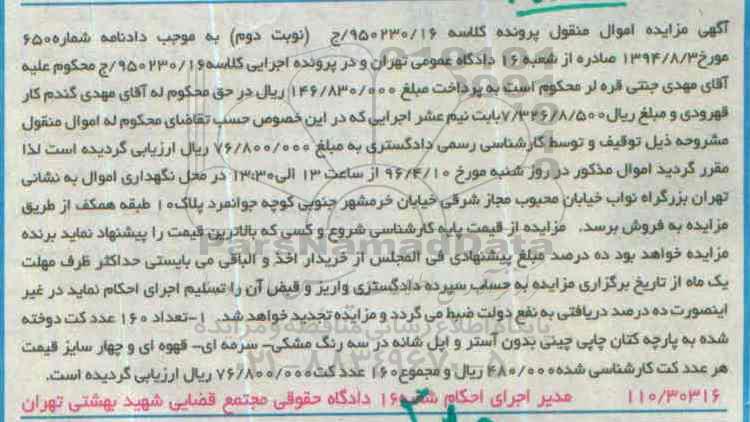 آگهی مزایده اموال منقول پرونده کلاسه ۹۵۰۲۳۰/۱۶/ج (نوبت دوم) به موجب دادنامه شماره۶۵۰
مورخ۱۳۹۴/۸/۳ صادره از شعبه ۱۶ دادگاه عمومی تهران و در پرونده اجرایی کلاسه۹۵۰۲۳۰/۱۶/ج محکوم علیه
آقای مهدی جنتی قره لر محکوم است به پرداخت مبلغ ۱۴۶/۸۳۰/۰۰۰ ریال در حق محکوم له آقای مهدی گندم کار
قهرودی و مبلغ ریال۷/۳۲۶/۸/۵۰۰بابت نیم عشر اجرایی که در این خصوص حسب تقاضای محکوم له اموال منقول
مشروحه ذیل توقیف و توسط کارشناسی رسمی دادگستری به مبلغ ۷۶/۸۰۰/۰۰۰ ریال ارزیابی گردیده است لذا
مقرر گردید اموال مذکور در روز شنبه مورخ ۹۶/۴/۱۰ از ساعت ۱۳ الی۱۳:۳۰ در محل نگهداری اموال به نشانی
تهران بزرگراه نواب خیابان محبوب مجاز شرقی خیابان خرمشهر جنوبی کوچه جوانمرد پلاک۱۰ طبقه همکف از طریق
مزایده به فروش برسد. مزایده از قیمت پایه کارشناسی شروع و کسی که بالاترین قیمت را پیشنهاد نماید برنده
مزایده خواهد بود ده درصد مبلغ پیشنهادی فی المجلس از خریدار اخذ و الباقی می بایستی حداکثر ظرف مهلت
یک ماه از تاریخ برگزاری مزایده به حساب سپرده دادگستری واریز و قبض آن را تسلیم اجرای احکام نماید در غیر
اینصورت ده درصد دریافتی به نفع دولت ضبط می گردد و مزایده تجدید خواهد شد. ۱-تعداد ۱۶۰ عدد کت دوخته
شده به پارچه کتان چاپی چینی بدون آستر و اپل شانه در سه رنگ مشکی- سرمه ای- قهوه ای و چهار سایز قیمت
هر عدد کت کارشناسی شده۴۸۰/۰۰۰ ریال و مجموع۱۶۰ عدد کت۷۶/۸۰۰/۰۰۰ ریال ارزیابی گردیده است.
۱۱۰/۳۰۳۱۶ مدیر اجرای احکام شعبه۱۶ دادگاه حقوقی مجتمع قضایی شهید بهشتی تهران
ParsNamadData
پایگاه اطلاع رسانی مناقصه و مزایده